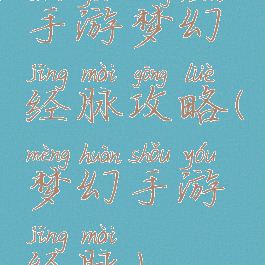 手游梦幻
jīng mài gōng lüè
经脉攻略(
mèng huàn shǒu yóu
梦幻手游
jīng mài
经脉)